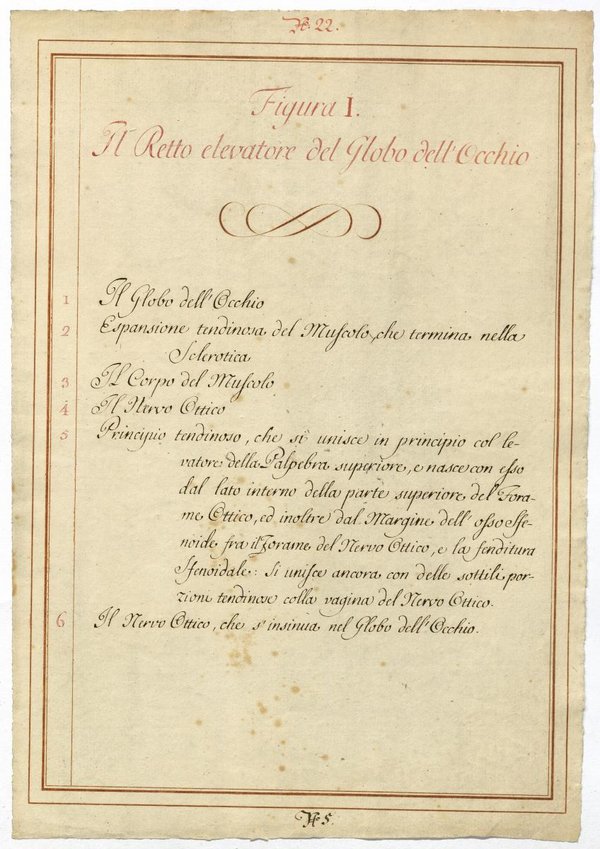 N. 22.
Figura I.
Il Retto elevatore del Globo dell'Occhio
1 Il Globo dell'Occhio
2 Espansione tendinosa del Muscolo, che termina nella
Sclerotica
3 Il Corpo del Muscolo
4 Il Nervo Ottico
5 Principio tendinoso, che si unisce in principio col le-
vatore della Palpebra superiore, e nasce con esso
dal lato interno della parte superiore del Fora-
me Ottico, ed inoltre dal Margine dell'osso Sfe-
noide fra il Forame del Nervo Ottico, e la fenditura
Sfenoidale: Si unisce ancora con delle sottili por-
zioni tendinose colla vagina del Nervo Ottico.
6 Il Nervo Ottico, che s'insinua nel Globo dell'Occhio.
N. 5.